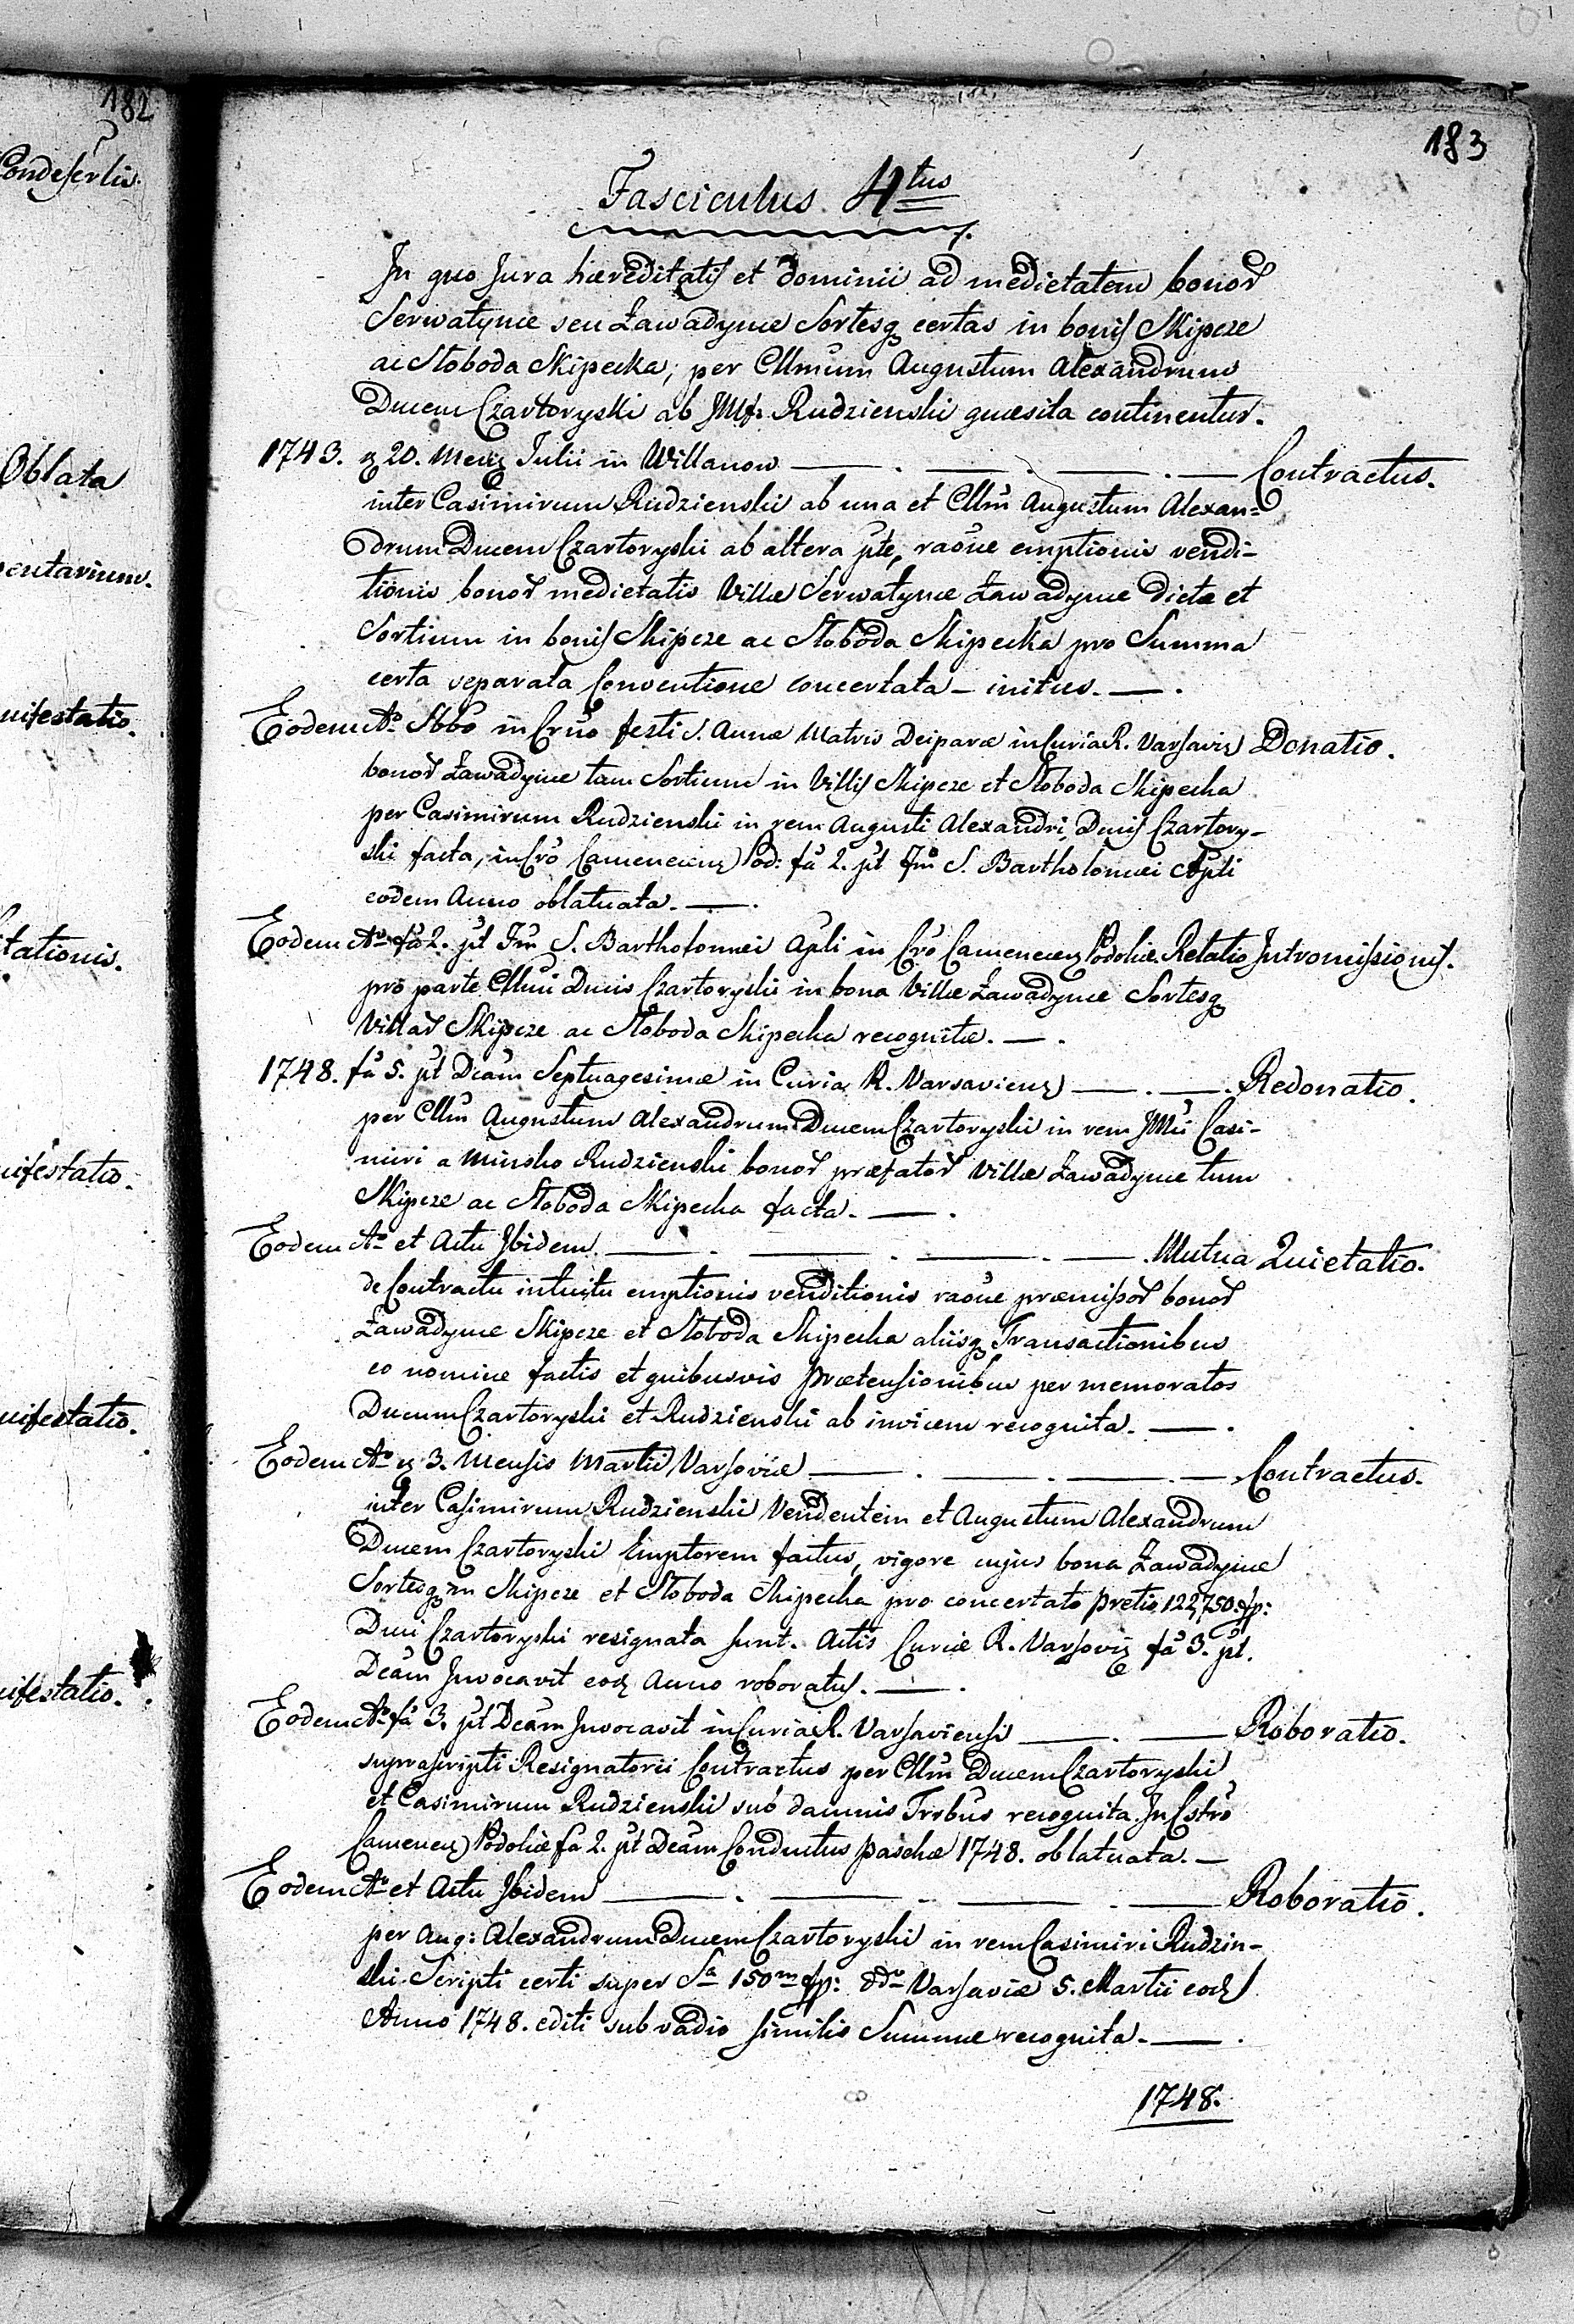 182
Condescensu
Oblata
mentarium.
nifestatio.
tationis.
nifestatio.
nifestatio.
nifestatio.
183
Fasciculus 4tus
In quo Jura haereditatis et dominii ad medietatem bonor
Serwatynce seu Zawadynce Sortesq certas in bonis Skipcze
ac Sloboda Skipecka, per Cllmum Augustum Alexandrum
Ducem Czartoryski ab JMf. Rudzienski quaesita continentur.
1743. q 20. Mens Julii in Willanow —. —. —. — Contractus.
inter Casimirum Rudzienski ab una et Cllm Augustum Alexan=
drum Ducem Czartoryski ab altera pte, raone emptionis vendi-
tionis bonor medietatis Villae Serwatynce Zawadynce dictae et
Sortium in bonis Skipcze ac Sloboda Skipecka pro Summa
certa separata Conventione concertata – initus. —.
Eodem Ao Sbbo in Crno festi S. Annae Matris Deiparae in Curia R. Varsavis Donatio.
bonor Zawadynce tam Sortium in Villis Skipcze et Sloboda Skipecka
per Casimirum Rudzienski in rem Augusti Alexandri, Ducis Czartory-
ski facta, in Cro Camenecens Pod: fa 2. pt Fm S. Bartholomaei Apli
eodem Anno oblatuata. —.
Eodem Ao fa 2. pt Fm S. Bartholomaei Apli in Cro Camenecens Podoliae Relatio Intromissionis.
pro parte Cllmi Ducis Czartoryski in bona Villae Zawadynce Sortesq
Villar Skipcze ac Sloboda Skipecka recognitae. —.
1748. fa 5. pt Dcam Septuagesimae in Curia R. Varsaviens —. —. Redonatio.
per Cllm Augustum Alexandrum Ducem Czartoryski in rem JMci Casi-
miri a Minsko Rudzienski bonor praefator Villae Zawadynce tum
Skipcze ac Sloboda Skipecka facta. —.
Eodem Ao et Actu Ibidem. —. —. —. —. Mutua Quietatio.
de Contractu intuitu emptionis venditionis raone praemissor bonor
Zawadynce Skipcze et Sloboda Skipecka aliisq Transactionibus
eo nomine factis et quibusvis praetensionibus per memoratos
Ducem Czartoryski et Rudzienski ab invicem recognita. —.
Eodem Ao q 3. Mensis Martii Varsoviae —. —. —. — Contractus.
inter Casimirum Rudzienski Vendentem et Augustum Alexandrum
Ducem Czartoryski Emptorem factus, vigore cujus bona Zawadynce
Sortesq in Skipcze et Sloboda Skipecka pro concertato pretio 122,750 fp:
Duci Czartoryski resignata sunt. Actis Curiae R. Varsovis fa 3. pt.
Dcam Invocavit eod Anno roboratus. —.
Eodem Ao fa 3. pt Dcam Invocavit in Curia R. Varsaviensi —. — Roboratio.
suprascripti Resignatorii Contractus per Cllm Ducem Czartoryski
et Casimirum Rudzienski sub damnis Trrbus recognita. In Cstro
Camenecs Podoliae fa 2. pt Dcam Conductus paschae 1748. oblatuata. —
Eodem Ao et Actu Ibidem —. —. —. — Roboratio.
per Aug: Alexandrum Ducem Czartoryski in rem Casimiri Rudzin-
ski Scripti certi super Sa 150m fp: ddo Varsaviae 5. Martii eod
Anno 1748. editi sub vadio similis Summae recognita. —.
1748.